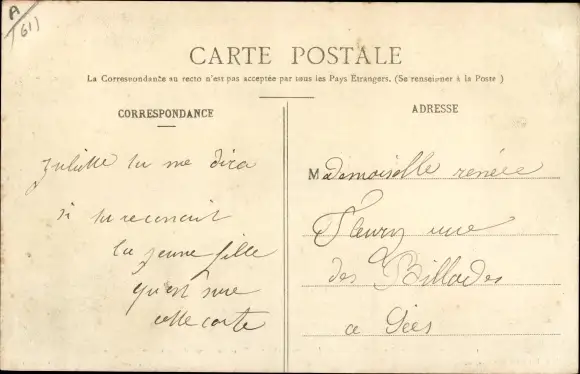 A
61)
CARTE POSTALE
La Correspondance au recto n'est pas acceptée par tous les Pays Etrangers. (Se renseigner à la Poste)
CORRESPONDANCE
Juliette tu me dira
si tu reconait
la jeune fille
qu'est sure
cette carte
ADRESSE
Mademoiselle renée
Fleury rue
des Billades
a Gies